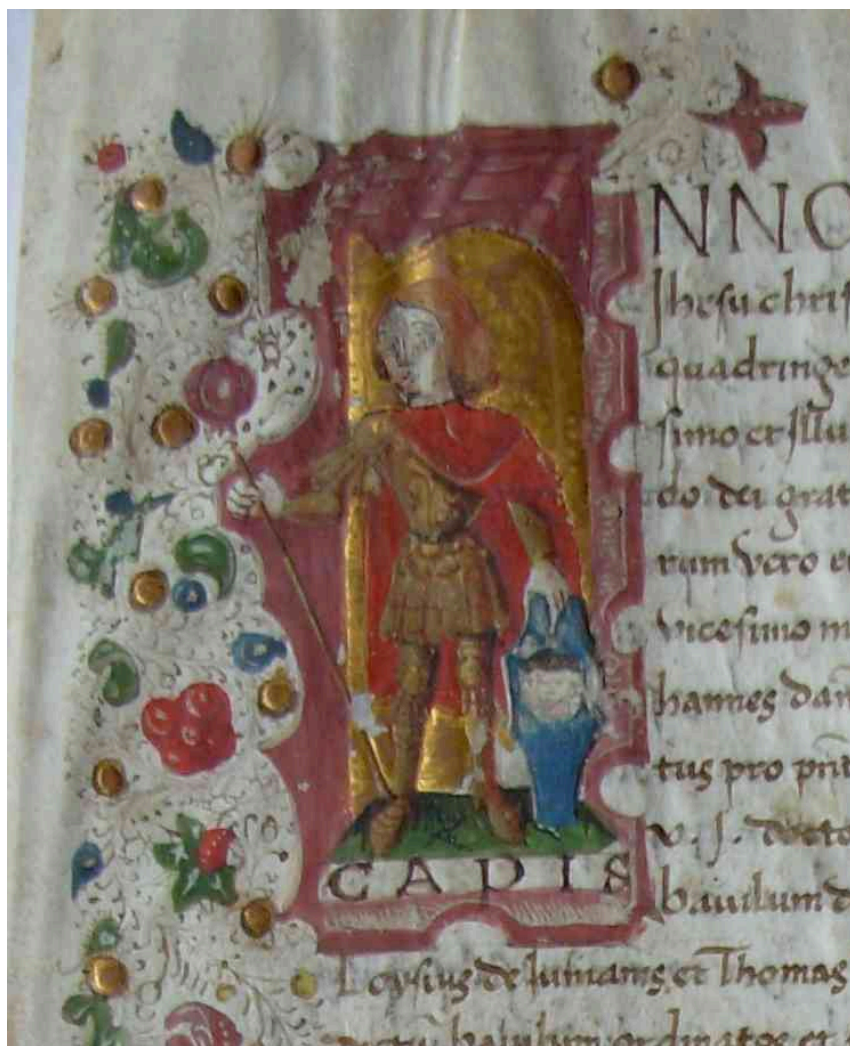 NNO
Jhesu chris
quadringe
simo et Illu
do dei grat
rum vero e
vicesimo m
hannes dan
tus pro pñt
v. J. docto
CAPIS
baiulum d
Loysius de lusmanis et Thomas
dictũ baiulum ordinatos et